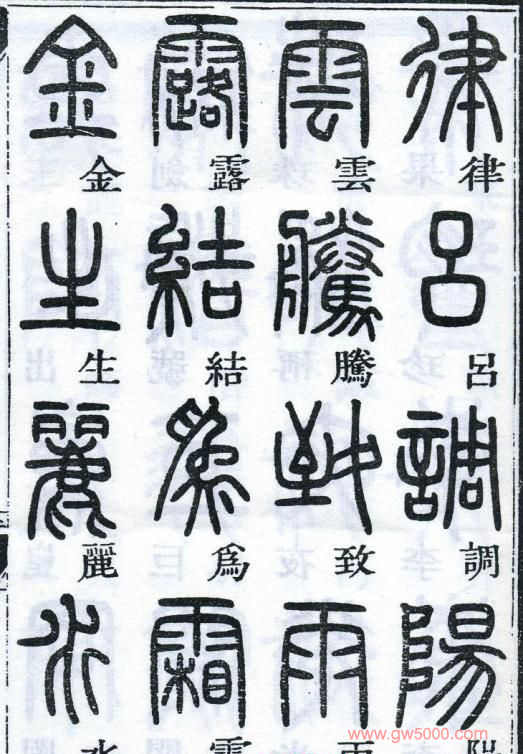 律律呂呂調調陽
雲雲騰騰致致雨
露露結結爲爲霜
金金生生麗麗水
www.gw5000.com